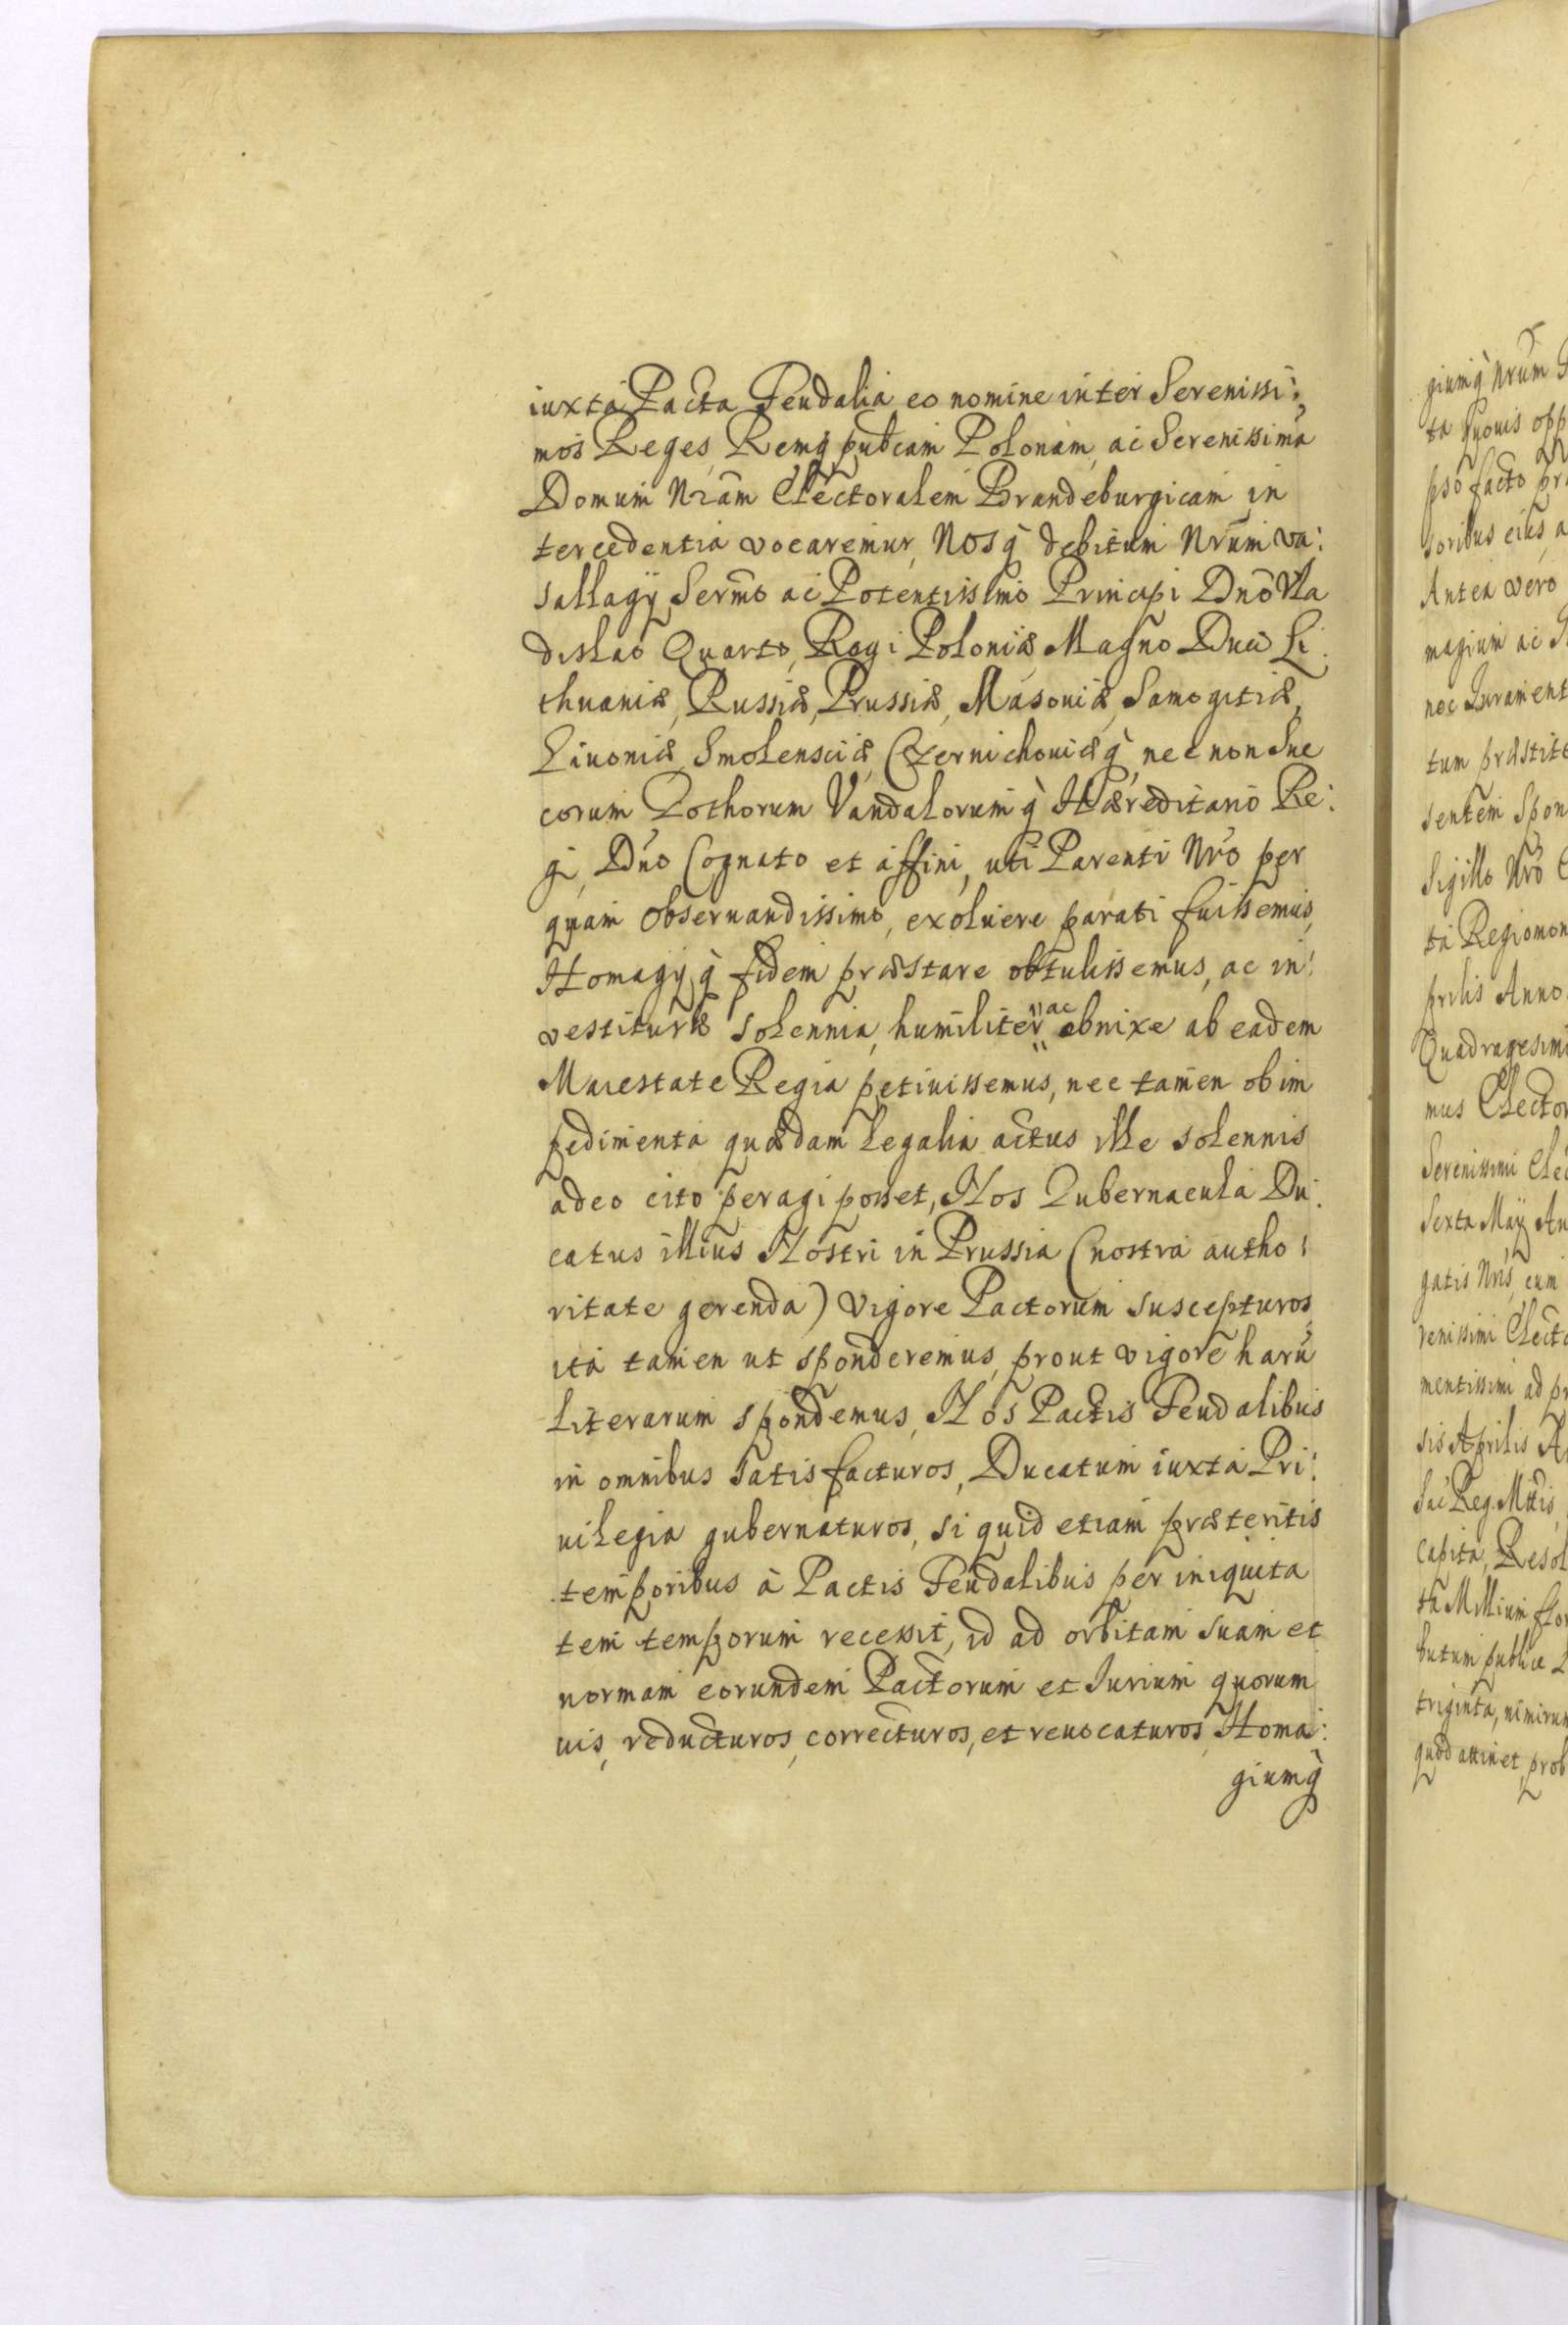 iuxta Pacta Feudalia eo nomine inter Serenissi:
mos Reges, Remq̀ pub̃cam Polonam, ac Serenissima
Domum Nr̃am Electoralem Brandeburgicam in
tercedentia vocaremur, Nosq̀ debitum Nr̃um va:
sallagÿ Serm̃o ac Potentissimo Principi Dnõ Vla
dislao Quarto, Regi Poloniæ Magno Duci Li:
thuaniæ, Russiæ, Prussiæ, Masouiæ, Samogitiæ,
Liuoniæ Smolensciæ, Czernichouiæq̀, nec non Sue
corum Gothorum Vandalorumq̀ Hæreditario Re:
gi, Dnõ Cognato et affini, uti Parenti Nrõ per
quam obseruandissimo, exoluere parati fuissemus,
Homagÿq̀ fidem præstare obtulissemus, ac in:
vestituræ solennia, humiliter ac obnixe ab eadem
Maiestate Regia petiuissemus, nec tamen ob im
pedimenta quædam legalia actus ille solennis
adeo cito peragi posset, Nos Gubernacula Du:
catus illius Nostri in Prussia (nostra autho:
ritate gerenda) vigore Pactorum suscepturos,
ita tamen ut sponderemus, prout vigore harũ
literarum spondemus, Nos Pactis Feudalibus
in omnibus satis facturos, Ducatum iuxta Pri:
uilegia gubernaturos, si quid etiam præteritis
temporibus à Pactis Feudalibus per iniquita
tem temporum recessit, id ad orbitam suam et
normam eorundem Pactorum et Iurium quorum
uis, reducturos, correcturos, et reuocaturos, Homa:
giumq̀
giumq̀ Nrũm
ta quouis opp
pso facto pr
soribus eius, a
Antea vero
magium ac
nec Iurament
tum præstite
sentem Spon
Sigillo Nrõ
ta Regiomon
prilis Anno
Quadragesim
mus Elector
Serenissimi Elec
Sexta Maÿ An
gatis Nris, cum
renissimi Electo
mentissimi ad pr
sis Aprilis A
Sac Reg. Mttis
capita, Resol
ta Millium flor
butum publice
triginta, nimirum
quod attinet, prob